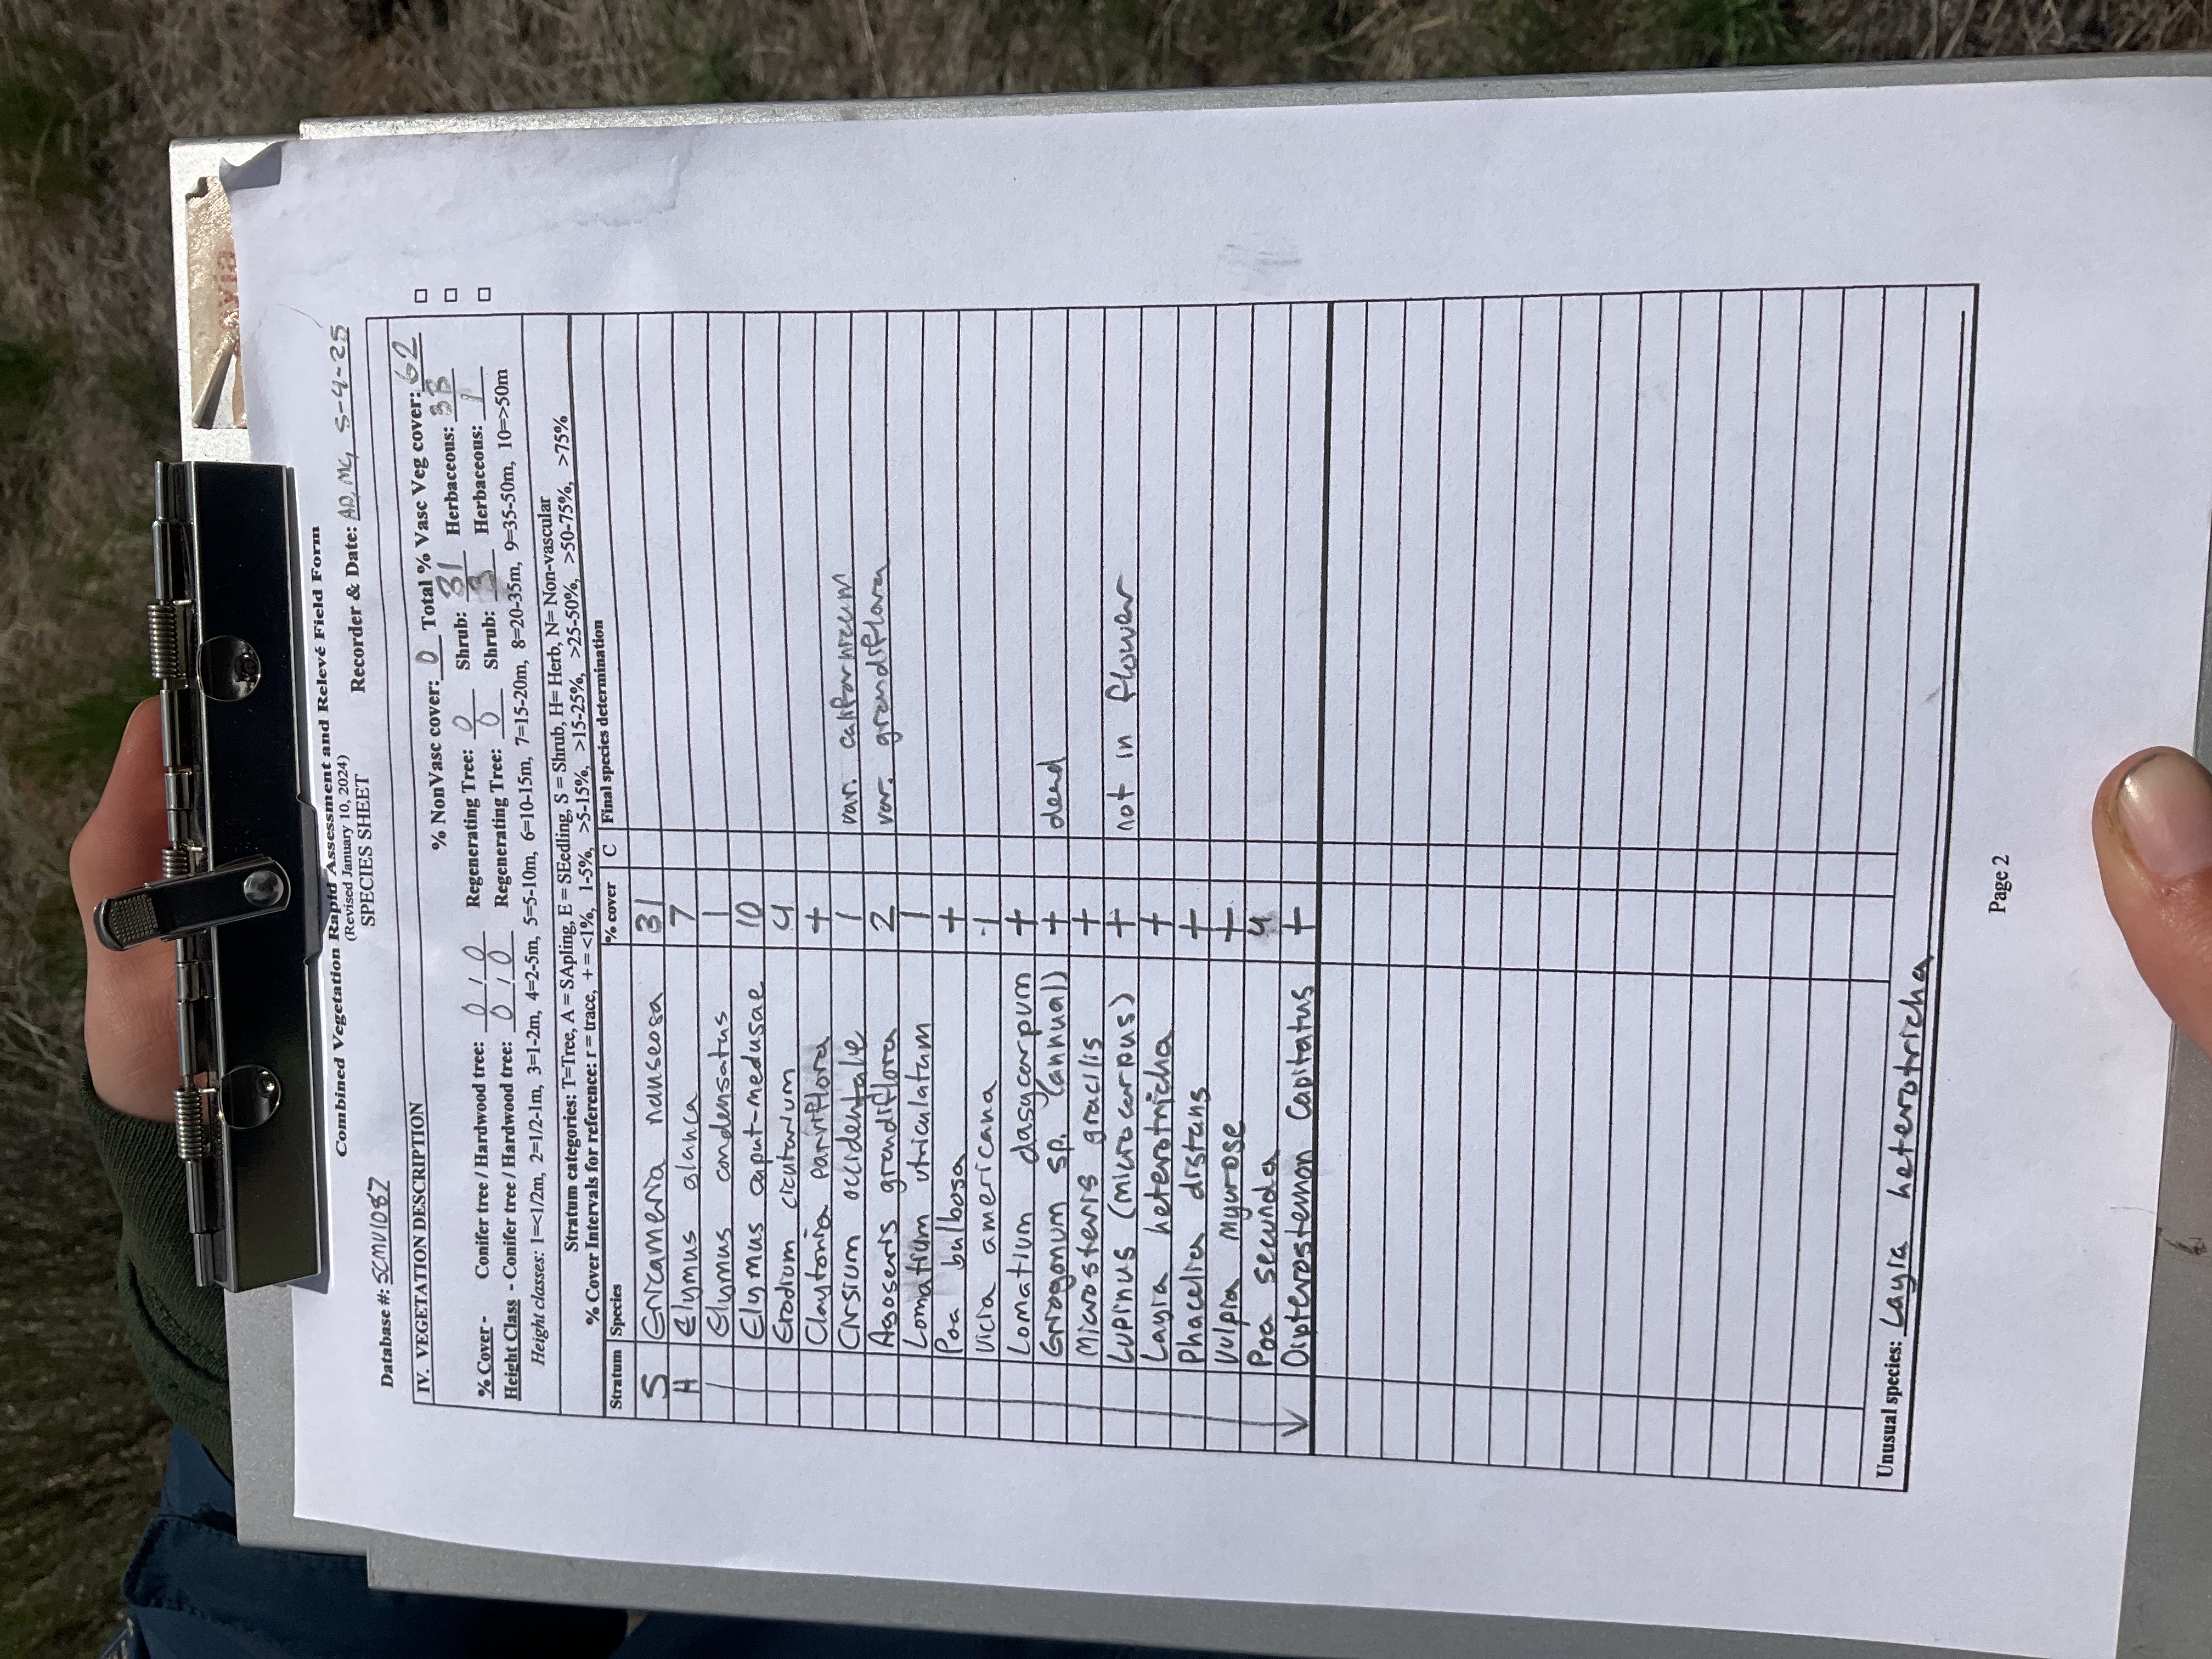 Combined Vegetation Rapid Assessment and Relevé Field Form
(Revised January 10, 2024)
SPECIES SHEET
Database #: SCMV1087 Recorder & Date: AD, MG, 5-4-25
IV. VEGETATION DESCRIPTION
% NonVasc cover: 0 Total % Vasc Veg cover: 62
% Cover - Conifer tree / Hardwood tree: 0 / 0 Regenerating Tree: 0 Shrub: 31 Herbaceous: 33
Height Class - Conifer tree / Hardwood tree: 0 / 0 Regenerating Tree: 0 Shrub: 3 Herbaceous: 1
Height classes: 1=<1/2m, 2=1/2-1m, 3=1-2m, 4=2-5m, 5=5-10m, 6=10-15m, 7=15-20m, 8=20-35m, 9=35-50m, 10=>50m
Stratum categories: T=Tree, A = SApling, E = SEedling, S = Shrub, H= Herb, N= Non-vascular
% Cover Intervals for reference: r = trace, + = <1%, 1-5%, >5-15%, >15-25%, >25-50%, >50-75%, >75%
Stratum Species % cover C Final species determination
S Ericameria nauseosa 31
H Elymus glauca 7
Elymus condensatus 1
Elymus caput-medusae 10
Erodium cicutarium 4
Claytonia parviflora +
Cirsium occidentale 1 var. californicum
Agoseris grandiflora 2 var. grandiflora
Lomatium utriculatum 1
Poa bulbosa +
Vicia americana 1
Lomatium dasycarpum +
Eriogonum sp. (annual) + dead
Microsteris gracilis +
Lupinus (microcarpus) + not in flower
Layia heterotricha +
Phacelia distans +
Vulpia myurose +
Poa secunda 4
Dipterostemon capitatus +
Unusual species: Layia heterotricha
Page 2